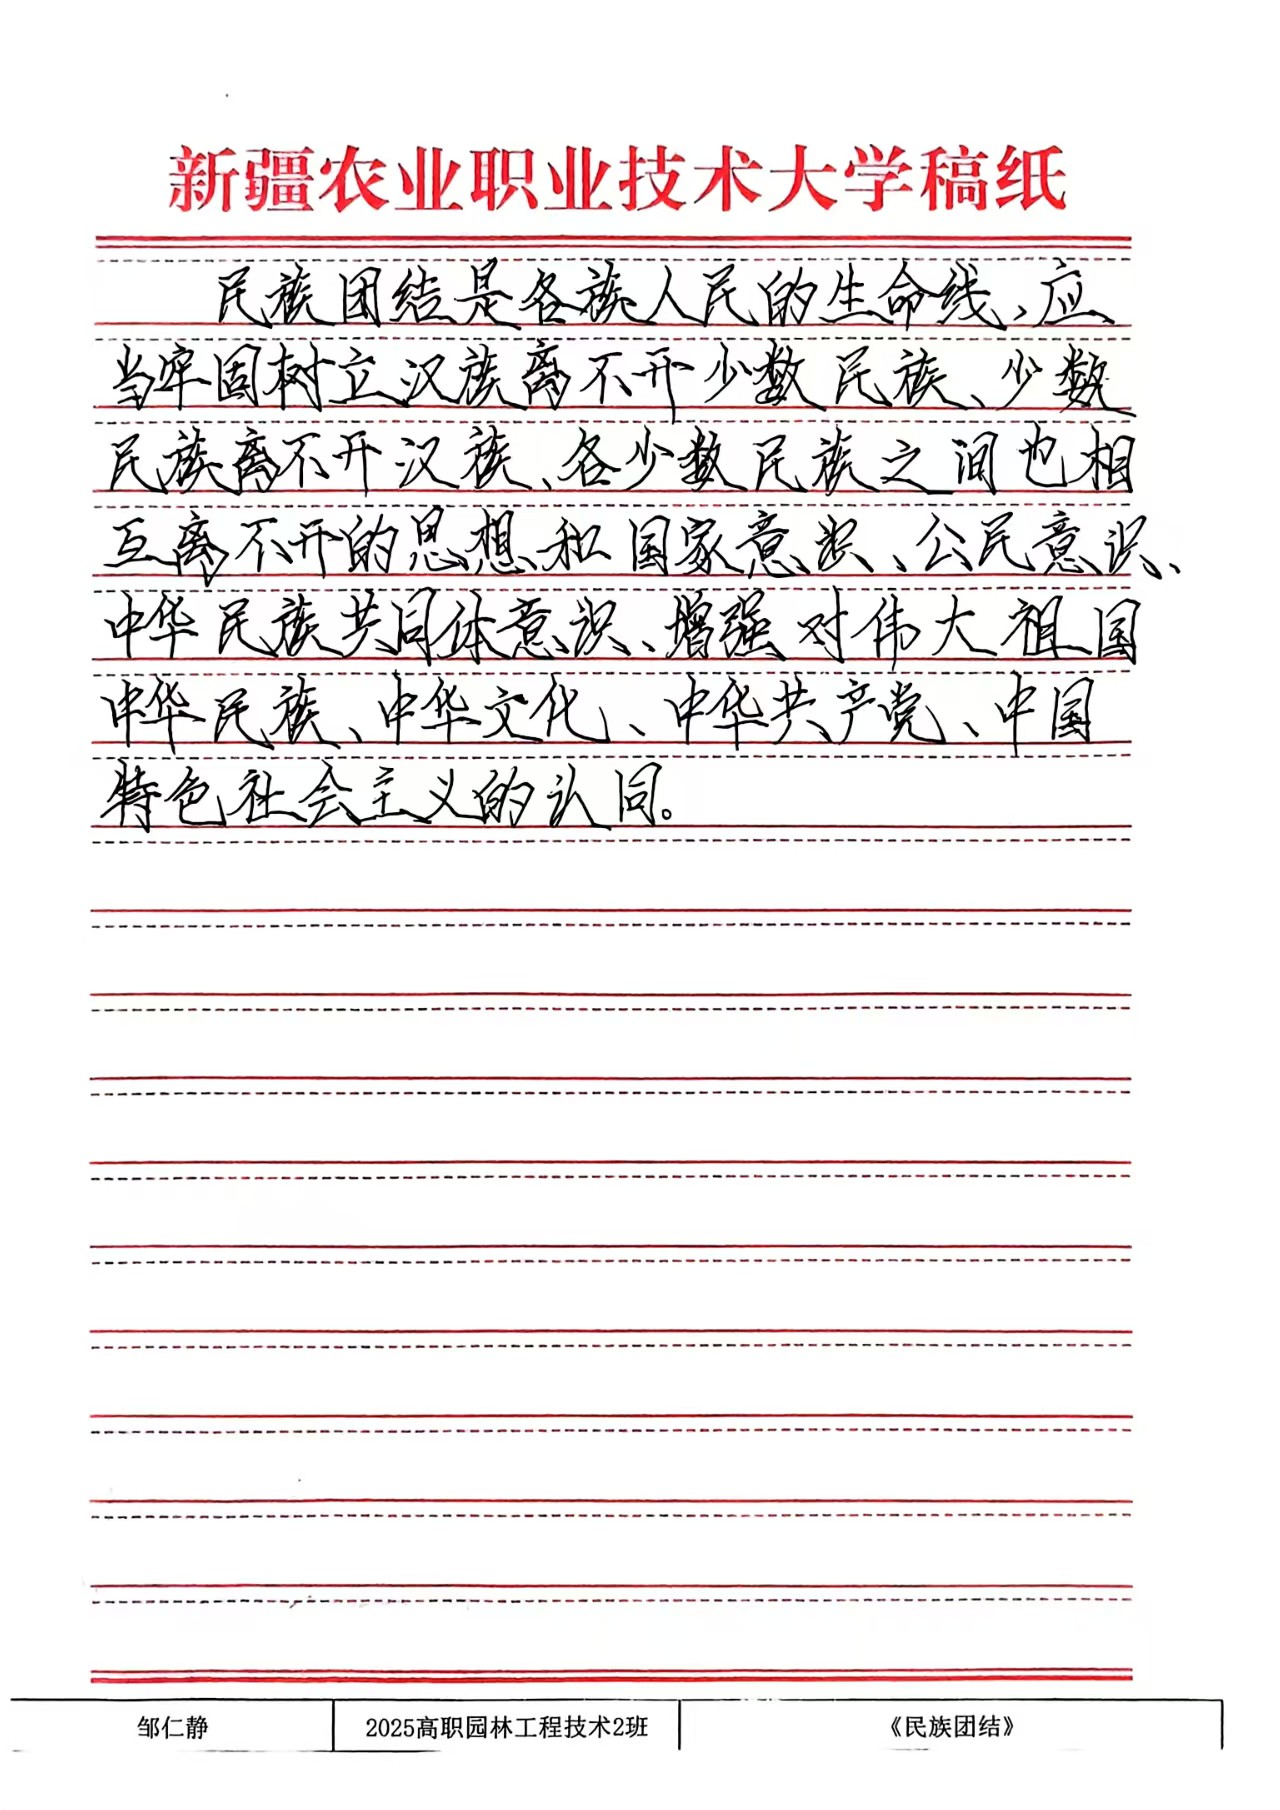 新疆农业职业技术大学稿纸
民族团结是各族人民的生命线、应
当牢固树立汉族离不开少数民族、少数
民族离不开汉族、各少数民族之间也相
互离不开的思想和国家意识、公民意识、
中华民族共同体意识、增强对伟大祖国
中华民族、中华文化、中华共产党、中国
特色社会主义的认同。
邹仁静 2025高职园林工程技术2班 《民族团结》